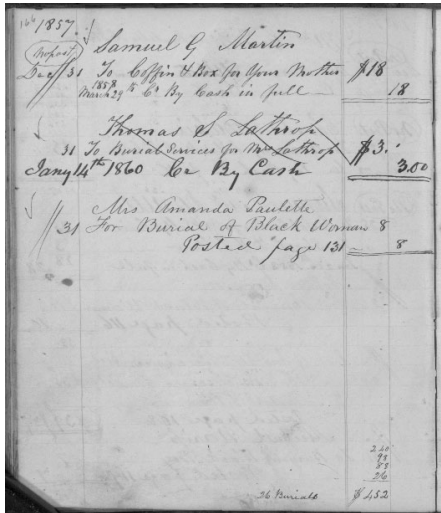 166 1857.
Samuel G Martin
Dec 31 To Coffin & Box for Your Mother $18
1858 March 29th Cr By Cash in full 18
Thomas S Lathrop
31 To Burial Services for Mrs Lathrop $3.
Jany 14th 1860 Cr By Cash 3.00
Mrs Amanda Paulette
31 For Burial of Black Woman 8
Posted page 131 8
240
98
88
26
26 Burials $452